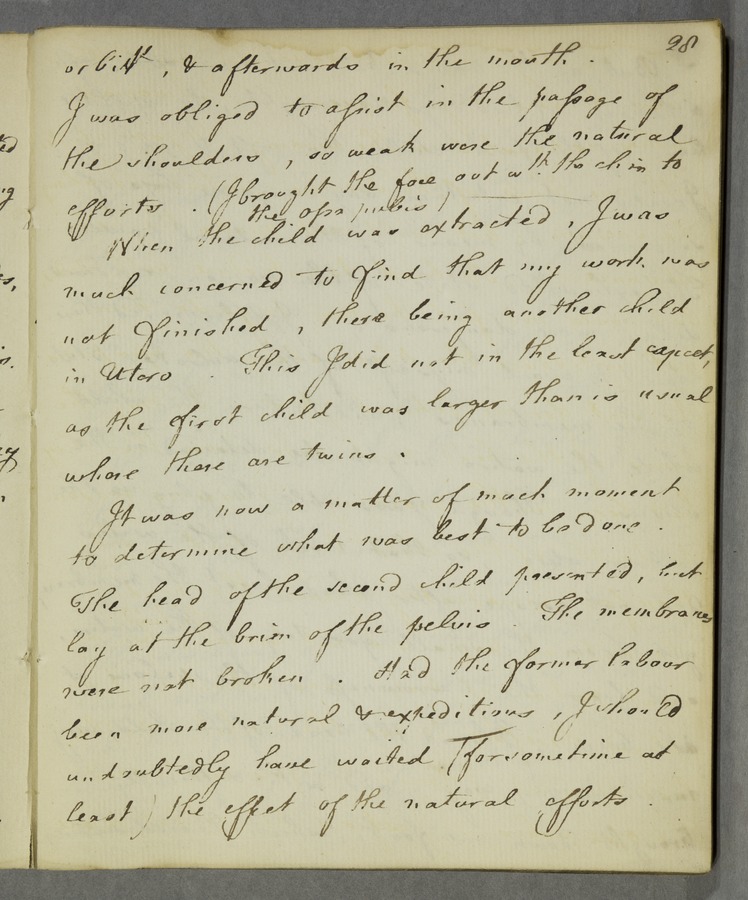 28
orbit, & afterwards in the mouth.
I was obliged to assist in the passage of
the shoulders, so weak were the natural
efforts. (I brought the face out wth. the chin to
the ossa pubis)
When the child was extracted, I was
much concerned to find that my work was
not finished, there being another child
in Utero. This I did not in the least expect,
as the first child was larger than is usual
where there are twins.
It was now a matter of much moment
to determine what was best to be done.
The head of the second child presented, but
lay at the brim of the pelvis. The membranes
were not broken. Had the former labour
been more natural & expeditious, I should
undoubtedly have waited (for sometime at
least) the effect of the natural efforts.